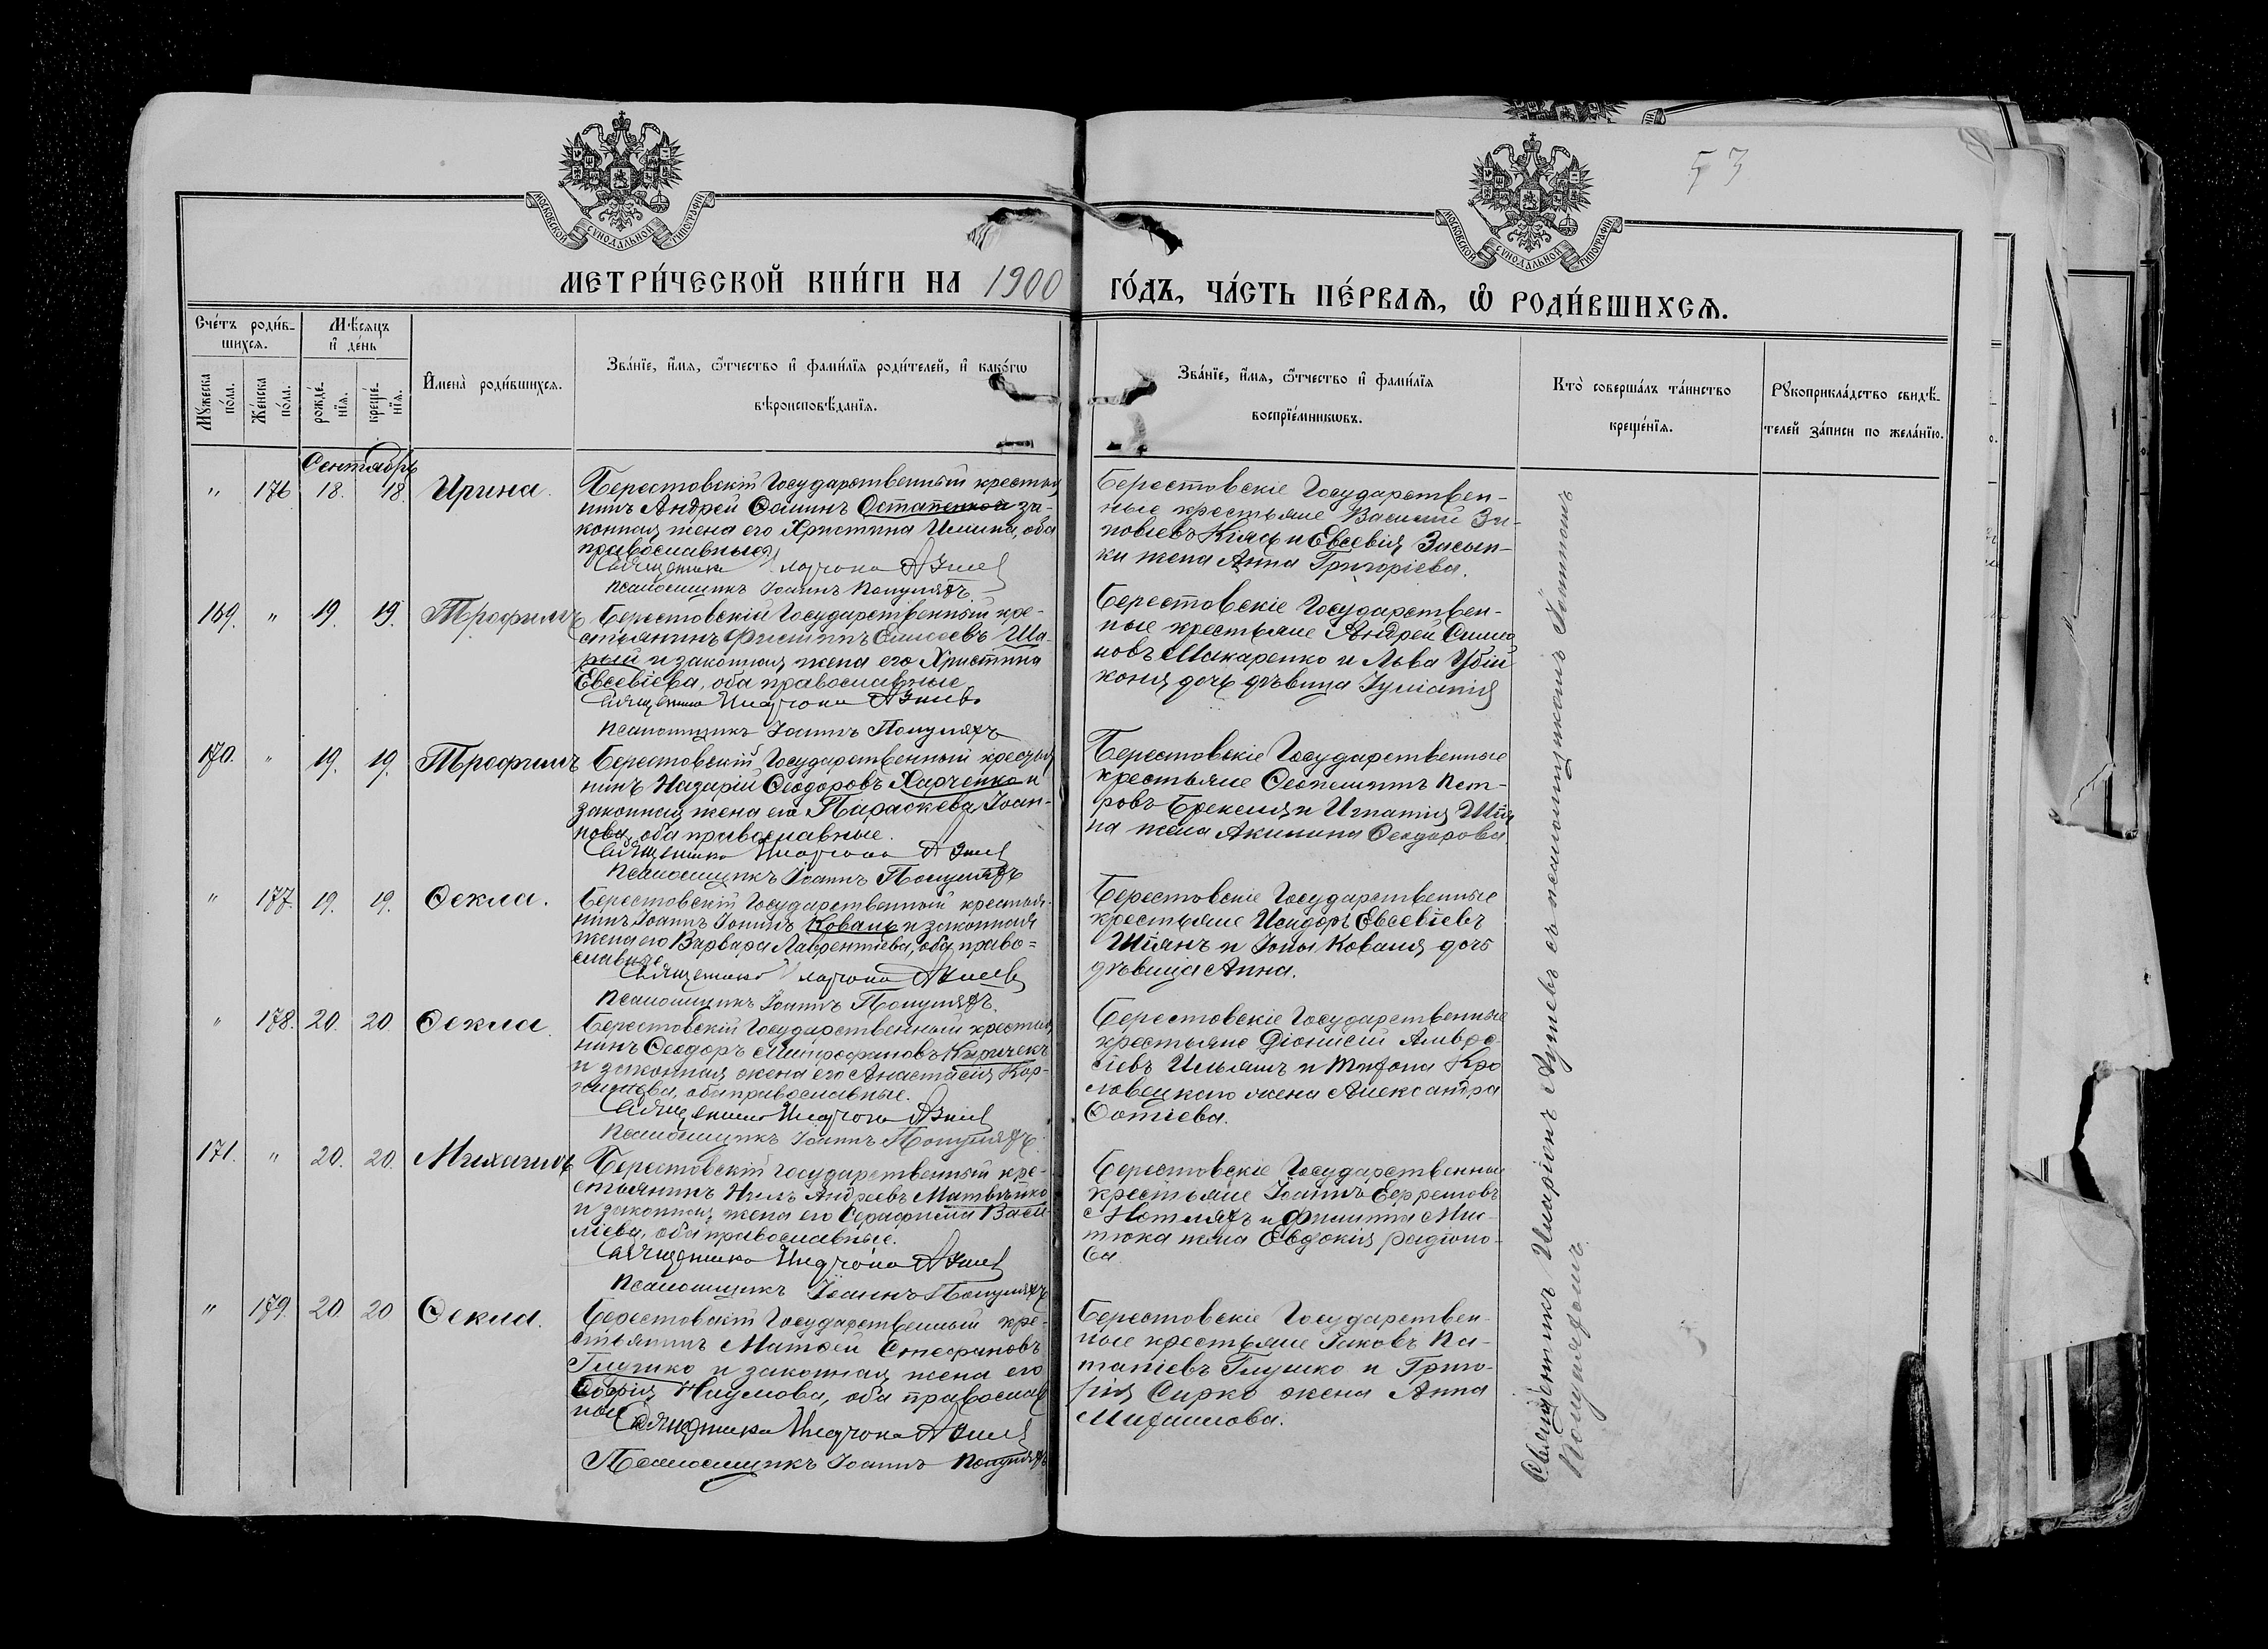 53
МОСКОВСКОЙ СѴНОДАЛЬНОЙ ТИПОГРАФІИ
МОСКОВСКОЙ СѴНОДАЛЬНОЙ ТИПОГРАФІИ
МЕТРИ́ЧЕСКОЙ КНИ́ГИ НА 1900 ГО́ДЪ, ЧА́СТЬ ПЕ́РВАѦ, Ѽ РОДИ́ВШИХСѦ.
Сче́тъ роди́в-
шихсѧ.
Мꙋ́жеска по́ла.
Же́нска по́ла.
Мѣ́сѧцъ
и҆ де́нь
рожде́-нїѧ.
креще́-нїѧ.
И҆мена̀ роди́вшихсѧ.
Зва́нїе, и҆́мѧ, ѻ҆́тчество и҆ фами́лїѧ роди́телей, и҆ како́гѡ
вѣроисповѣ́данїѧ.
Зва́нїе, и҆́мѧ, ѻ҆́тчество и҆ фами́лїѧ
воспрїе́мникѡвъ.
Кто̀ соверша́лъ та́инство
креще́нїѧ.
Рꙋкоприкла́дство свидѣ́-
телей за́писи по жела́нїю.
Сентябрь
" 176 18. 18. Ирина.
Берестовскій Государственный крестья
нинъ Андрей Ѳоминъ Остапенко и за-
конная жена его Христина Ильина, оба
православные
Священникъ Иларіонъ
Псаломщикъ Іоаннъ Полуляхъ
Берестовскіе Государствен-
ные крестьяне Василій Зи-
новіевъ Кіяц и Евсевія Засып-
ки жена Анна Григоріева.
169. " 19. 19. Трофимъ
Берестовскій Государственный кре-
стьянинъ Филиппъ Елисеевъ Ша-
рый и законная жена его Христина
Евсевіева, оба православные
Священникъ Иларіонъ
Псаломщикъ Іоаннъ Полуляхъ
Берестовскіе Государствен-
ные крестьяне Андрей Симо
новъ Макаренко и Льва Убій
коня дочь дѣвица Іуліанія
170. " 19. 19. Трофимъ
Берестовскій Государственный крестья
нинъ Назарій Ѳеодоровъ Харченко и
законная жена его Параскева Іоан-
нова, оба православные.
Священникъ Иларіонъ
Псаломщикъ Іоаннъ Полуляхъ
Берестовскіе Государственные
крестьяне Ѳеопемптъ Пет-
ровъ и Игнатія Шія
на жена Акилина Ѳеодорова
" 177. 19. 19. Ѳекла.
Берестовскій Государственный крестья-
нинъ Іоаннъ Іонинъ Коваль и законная
жена его Варвара Лаврентіева, оба право=
славные
Священникъ Иларіонъ
Псаломщикъ Іоаннъ Полуляхъ.
Берестовскіе Государственные
крестьяне Исидоръ Евсевіевъ
Шіянъ и Іоны Коваля дочь
дѣвица Анна.
" 178. 20. 20. Ѳекла
Берестовскій Государственный крестья
нинъ Ѳеодоръ Митрофановъ Киричекъ
и законная жена его Анастасія Кор-
оба православные.
Священникъ Иларіонъ
Псаломщикъ Іоаннъ Полуляхъ.
Берестовскіе Государственные
крестьяне Діонисій Амвро-
сіевъ Ильяшъ и Тихона Кро
левецкаго жена Александра
Фотіева.
171. " 20. 20. Михаилъ
Берестовскій Государственный кре-
стьянинъ Нилъ Андреевъ Матвѣйко
и законная жена его Серафима Васи
ліева, оба православные.
Священникъ Иларіонъ
Псаломщикъ Іоаннъ Полуляхъ
Берестовскіе Государственные
крестьяне Іоаннъ Ефремовъ
и Филиппа Мис-
тюка жена Евдокія Радіоно-
ва.
" 179. 20. 20 Ѳекла.
Берестовскій Государственный кре-
стьянинъ Матѳей Стефановъ
Глушко и законная жена его
Софія Наумова, оба православ
ные
Священникъ Иларіонъ
Псаломщикъ Іоаннъ Полуляхъ
Берестовскіе Государствен-
ные крестьяне Іаковъ Иг-
натіевъ Глушко и Григо-
рія Сирко жена Анна
Михаилова.
Священникъ Иларіонъ съ псаломщикомъ Іоанномъ
Полуляхомъ.